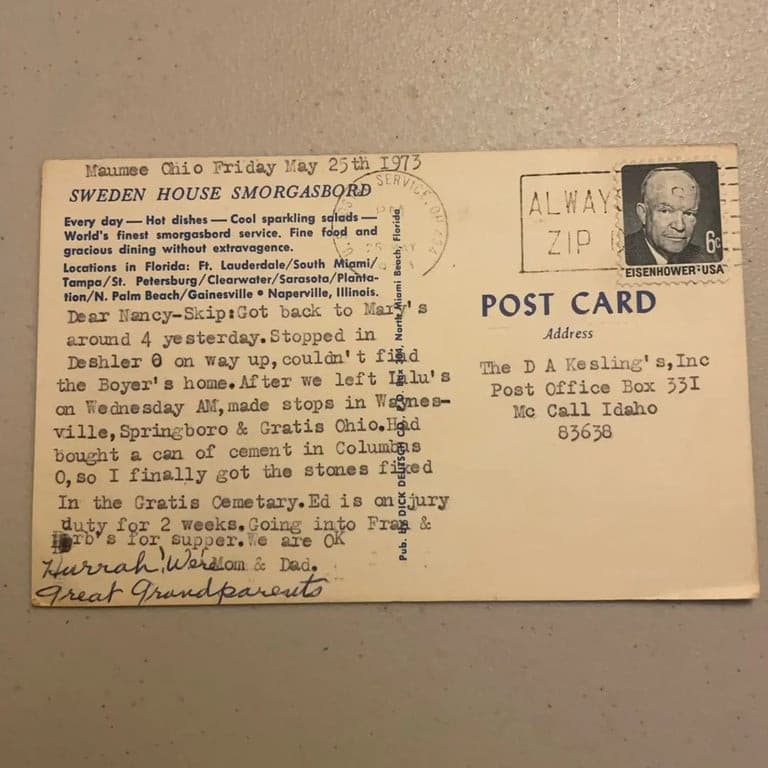 Maumee Ohio Friday May 25th 1973
SWEDEN HOUSE SMORGASBORD
Every day — Hot dishes — Cool sparkling salads —
World's finest smorgasbord service. Fine food and
gracious dining without extravagence.
Locations in Florida: Ft. Lauderdale/South Miami/
Tampa/St. Petersburg/Clearwater/Sarasota/Planta-
tion/N. Palm Beach/Gainesville • Naperville, Illinois.
Dear Nancy-Skip:Got back to Mary's
around 4 yesterday.Stopped in
Deshler O on way up,couldn't find
the Boyer's home.After we left Lulu's
on Wednesday AM,made stops in Waynes-
ville,Springboro & Gratis Ohio.Had
bought a can of cement in Columbus
O,so I finally got the stones fixed
In the Gratis Cemetary.Ed is on jury
duty for 2 weeks.Going into Fran &
Herb's for supper.We are OK
Mom & Dad.
Hurrah! We're
Great Grandparents
Pub. by DICK DEUTSCH CO. North Miami Beach, Florida
SERVICE, OH
PM
25 MAY
ALWAY
ZIP
6c
EISENHOWER·USA
POST CARD
Address
The D A Kesling's,Inc
Post Office Box 33I
Mc Call Idaho
83638